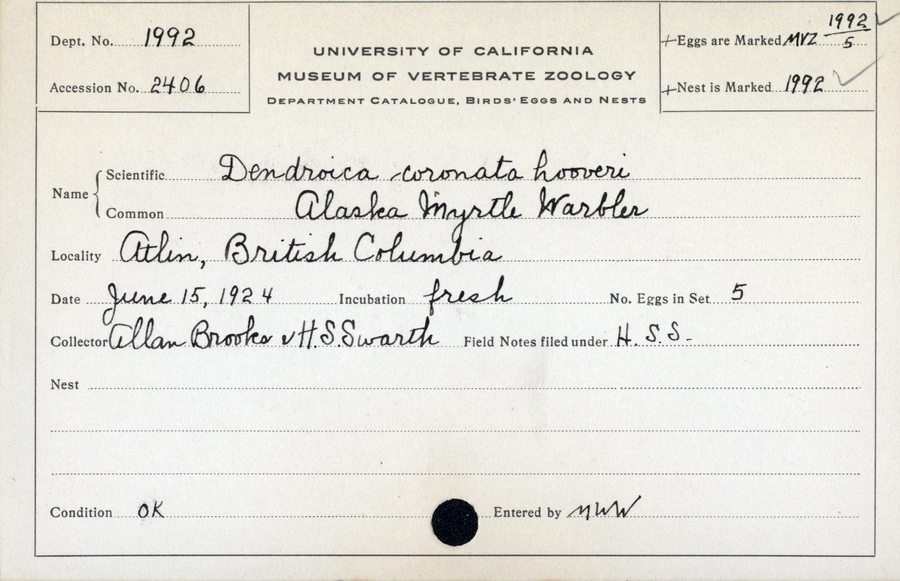 Dept. No. 1992
Accession No. 2406
UNIVERSITY OF CALIFORNIA
MUSEUM OF VERTEBRATE ZOOLOGY
DEPARTMENT CATALOGUE, BIRDS' EGGS AND NESTS
+Eggs are Marked MVZ 1992/5
+Nest is Marked 1992
Name
Scientific Dendroica coronata hooveri
Common Alaska Myrtle Warbler
Locality Atlin, British Columbia
Date June 15, 1924 Incubation fresh No. Eggs in Set 5
Collector Allan Brooks & H.S. Swarth Field Notes filed under H. S. S.
Nest
Condition OK Entered by